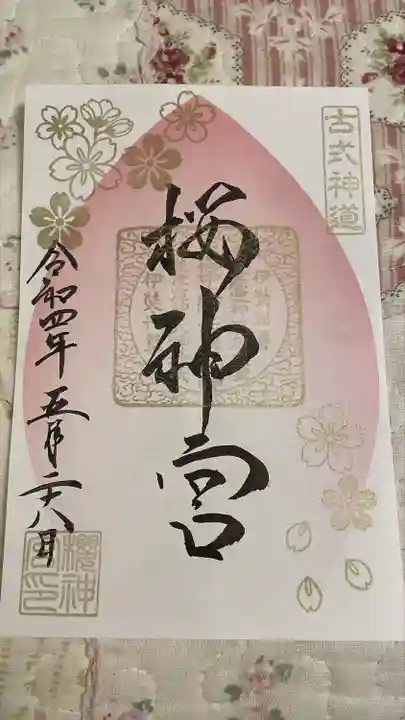 古式神道
桜神宮
令和四年五月二十八日
櫻神宮印